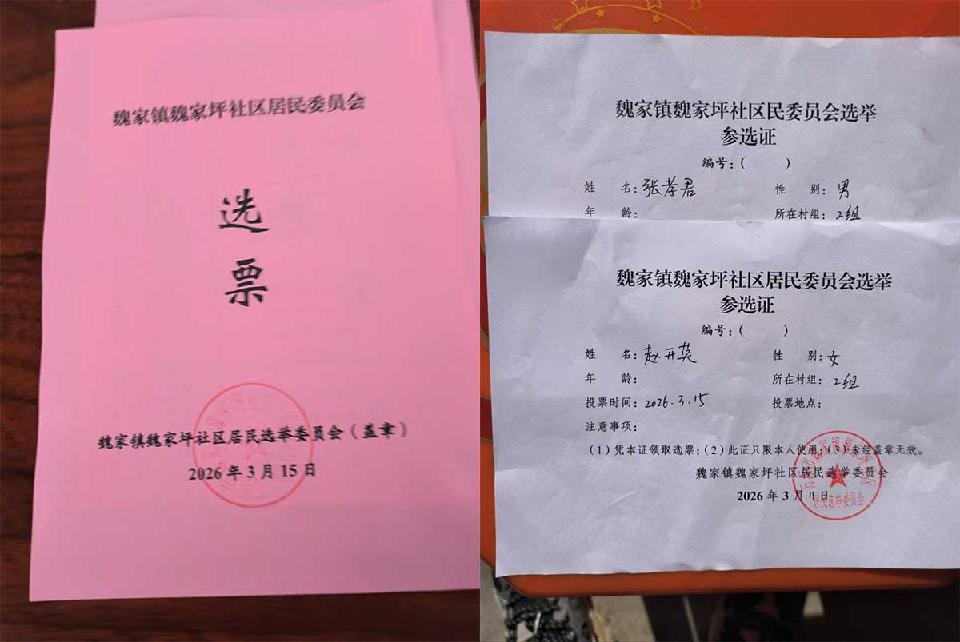 魏家镇魏家坪社区居民委员会
选
票
魏家镇魏家坪社区居民选举委员会（盖章）
2026年3月15日
魏家镇魏家坪社区民委员会选举
参选证
编号：（ ）
姓 名：张孝君 性 别：男
年 龄： 所在村组：2组
魏家镇魏家坪社区居民委员会选举
参选证
编号：（ ）
姓 名：赵开英 性 别：女
年 龄： 所在村组：2组
投票时间：2026.3.15 投票地点：
注意事项：
（1）凭本证领取选票；（2）此证只限本人使用；（3）未经盖章无效。
魏家镇魏家坪社区居民选举委员会
2026年3月1日